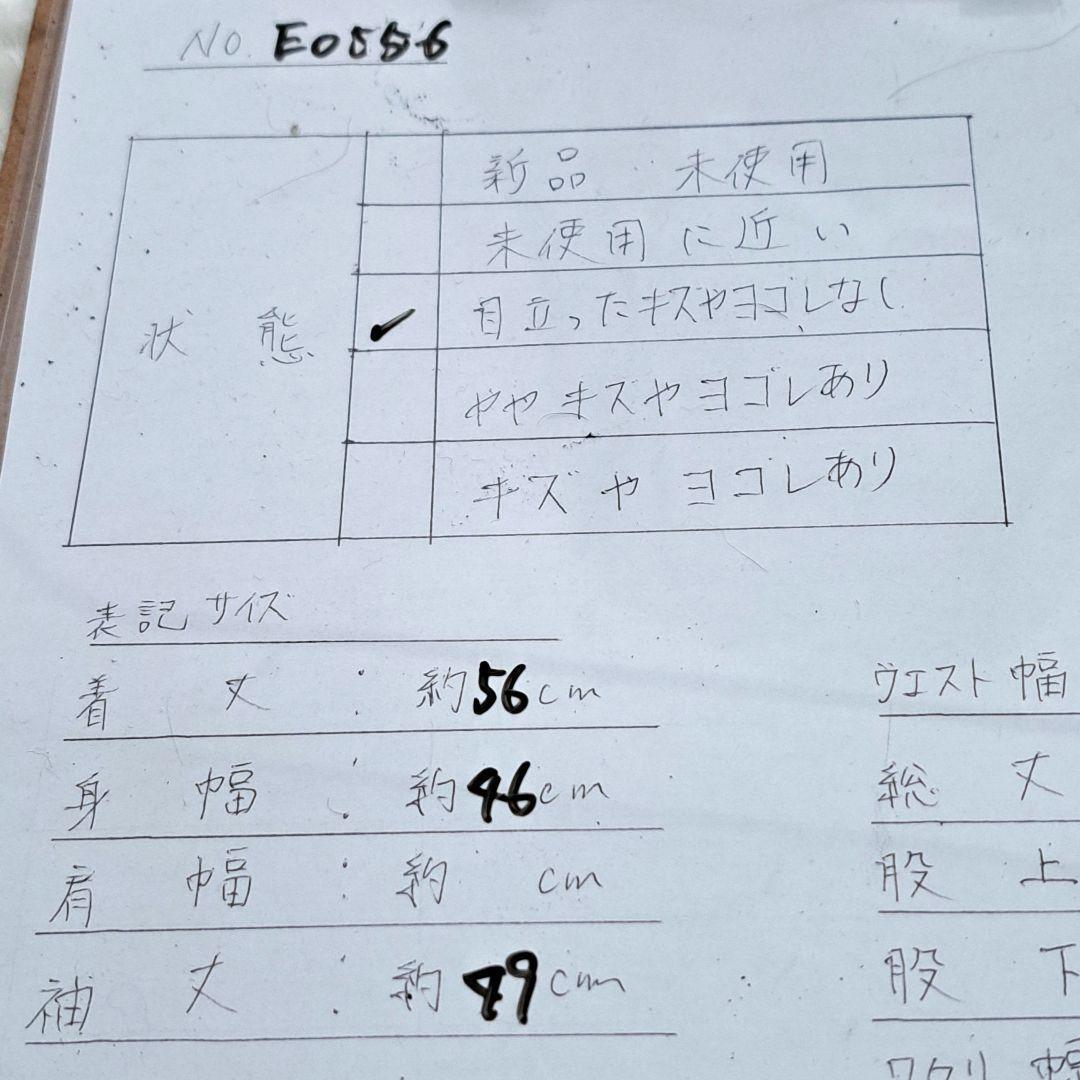 No. E0556
新品 未使用
未使用に近い
状態 ✓ 目立ったキズやヨゴレなし
ややキズやヨゴレあり
キズやヨゴレあり
表記サイズ
着丈:約56cm
身幅:約46cm
肩幅:約 cm
袖丈:約49cm
ウエスト幅
総丈
股上
股下